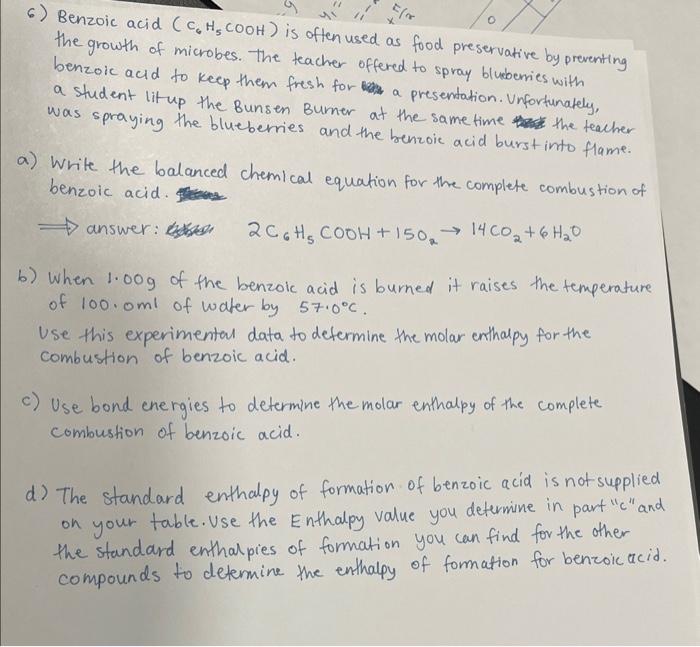 6) Benzoic acid (C₆H₅COOH) is often used as food preservative by preventing
the growth of microbes. The teacher offered to spray blueberries with
benzoic acid to keep them fresh for a presentation. Unfortunately,
a student lit up the Bunsen Burner at the same time the teacher
was spraying the blueberries and the benzoic acid burst into flame.
a) Write the balanced chemical equation for the complete combustion of
benzoic acid.
⟹ answer: 2C₆H₅COOH + 15O₂ → 14CO₂ + 6H₂O
b) When 1.00g of the benzoic acid is burned it raises the temperature
of 100.0ml of water by 57.0°C.
Use this experimental data to determine the molar enthalpy for the
combustion of benzoic acid.
c) Use bond energies to determine the molar enthalpy of the complete
combustion of benzoic acid.
d) The standard enthalpy of formation of benzoic acid is not supplied
on your table. Use the Enthalpy value you determine in part "c" and
the standard enthalpies of formation you can find for the other
compounds to determine the enthalpy of formation for benzoic acid.